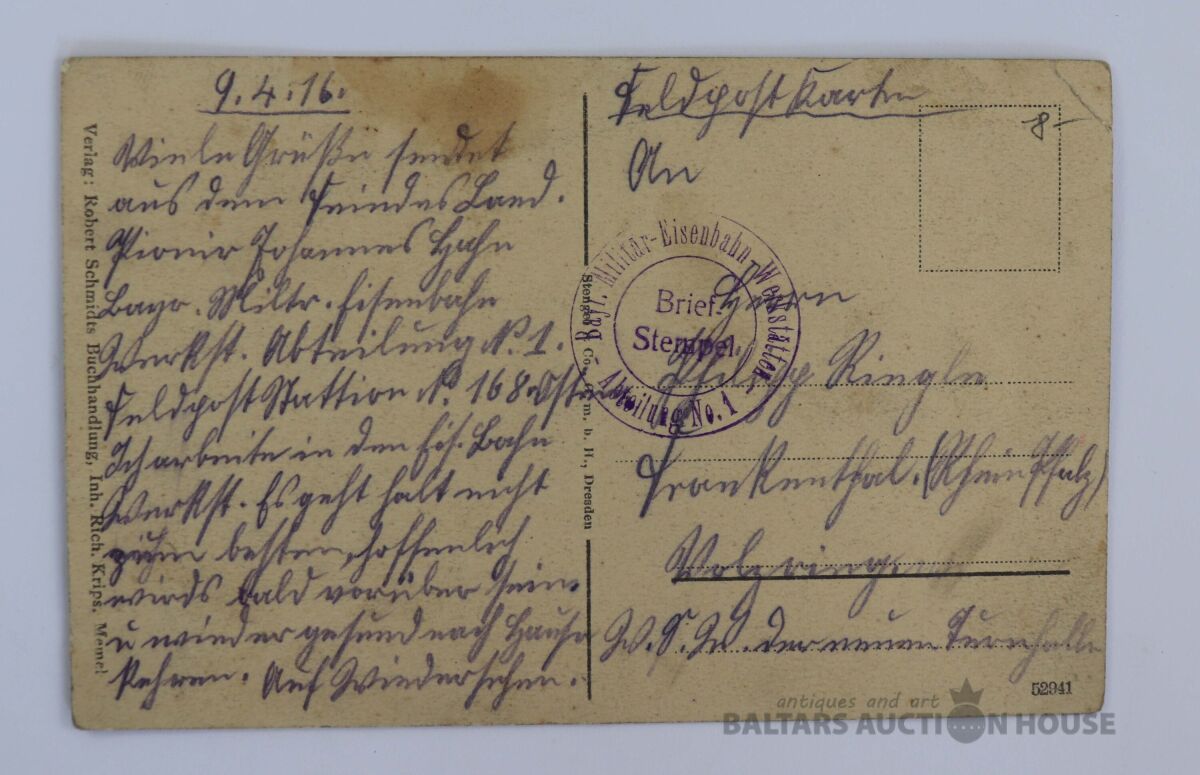 9.4.16.
Viele Grüße sendet
aus dem Feindes Land.
Pionir Johannes Hahn
Bayr. Miltr. Eisenbahn
Werkst. Abteilung N. 1.
Feldpost Stattion N. 168. Osten
Ich arbeite in den Eis. Bahn
Werkst. Es geht halt nicht
zum besten, hoffenlich
wirds bald vorüber sein.
u wieder gesund nach Hause
kehren. Auf Wiedersehen.
Verlag: Robert Schmidts Buchhandlung, Inh. Rich. Krips. Memel
Stengel Co., G. m. b. H., Dresden
Feldpost Karte
8-
An
Bayr. Militär-Eisenbahn-Werkstätten-
Abteilung No. 1
Brief-
Stempel.
Herrn
Philipp Ringle
Frankenthal. (Rhein Pfalz)
W. S. W. der neuen Turnhalle
52941
antiques and art
BALTARS AUCTION HOUSE